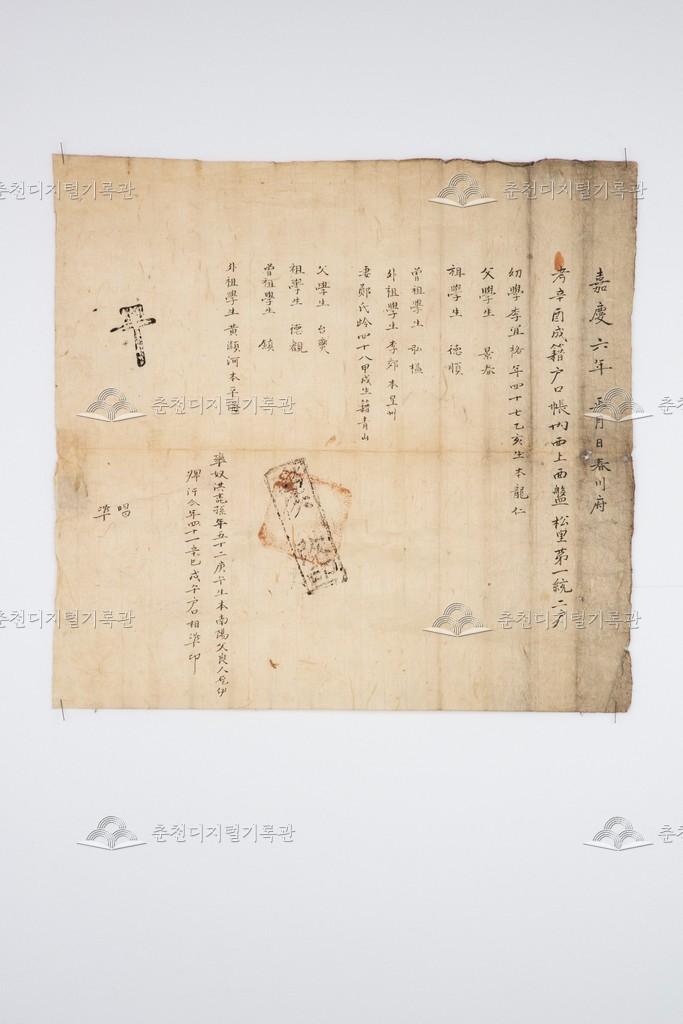 嘉慶六年 正月 日 春川府
考辛酉成籍戶口帳內西上西盤松里第一統二戶
幼學李宜 年四十七乙亥生本龍仁
父學生 景春
祖學生 德順
曾祖學生 弘
外祖學生 李郊 本星州
妻鄭氏齡四十八甲戌生籍靑山
父學生 台奭
祖學生 德觀
曾祖學生 鎭
外祖學生 黃灝河 本平海
率奴洪 孫年五十二庚午生本南陽父良人
婢 今年四十一辛巳戊午戶口相準印
唱
準
춘천디지털기록관
춘천디지털기록관
춘천디지털기록관
춘천디지털기록관
춘천디지털기록관
춘천디지털기록관